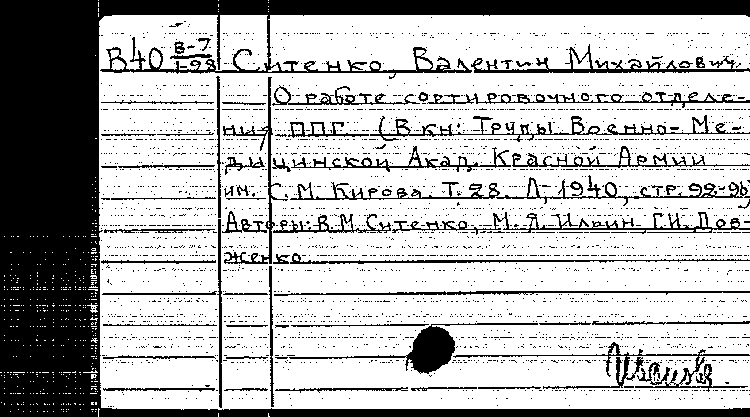 В40 В-7/1-98 Ситенко, Валентин Михайлович
О работе сортировочного отделе-
ния ППГ. (В кн: Труды Военно-Ме-
дицинской Акад. Красной Армии
им. С.М. Кирова. Т. 28. Л, 1940, стр. 92-96)
Авторы: В.М. Ситенко, М.Я. Ильин, Г.И. Дов-
женко